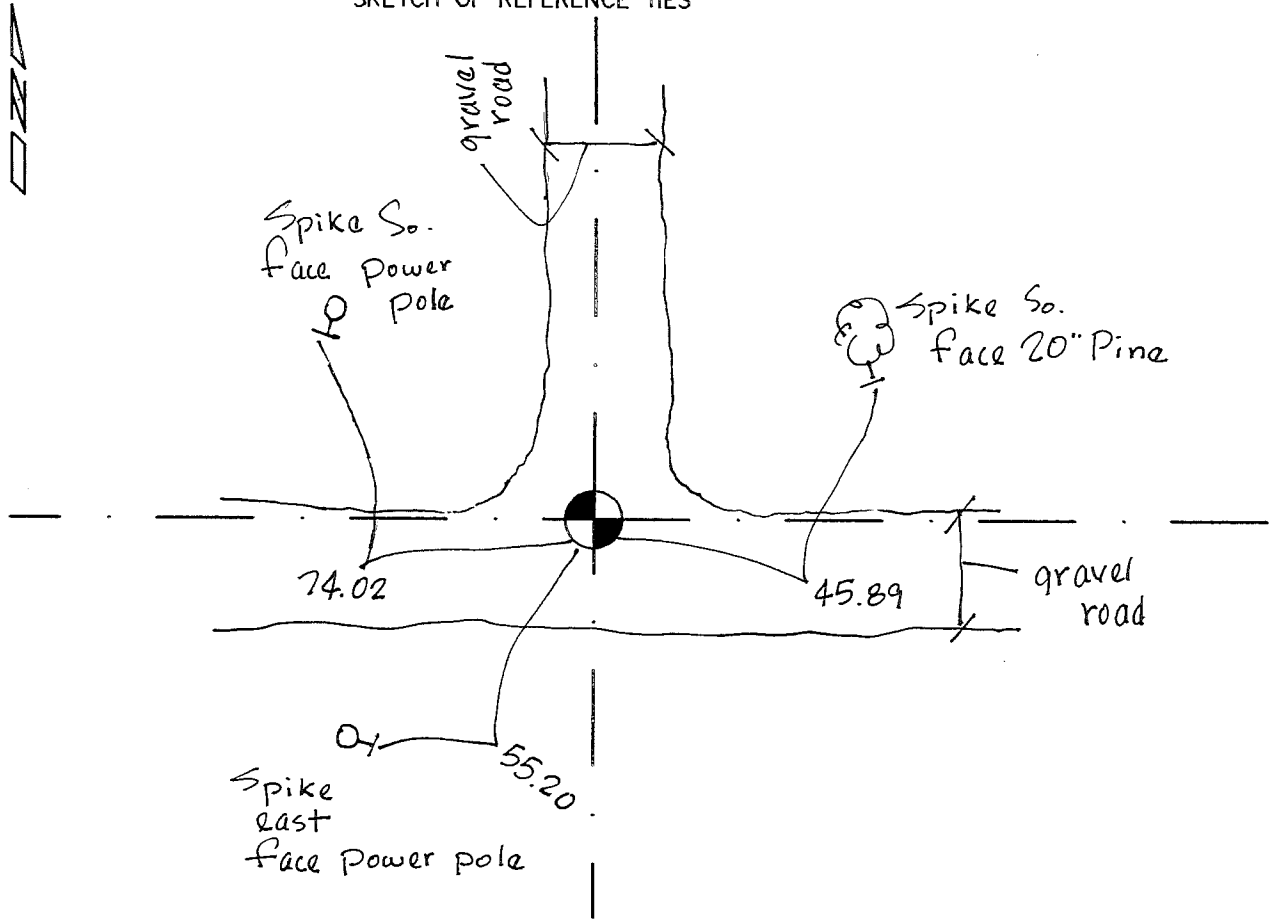 SKETCH OF REFERENCE TIES
N
gravel
road
Spike So.
face power
pole
Spike So.
face 20" Pine
74.02
45.89
gravel
road
55.20
Spike
east
face power pole